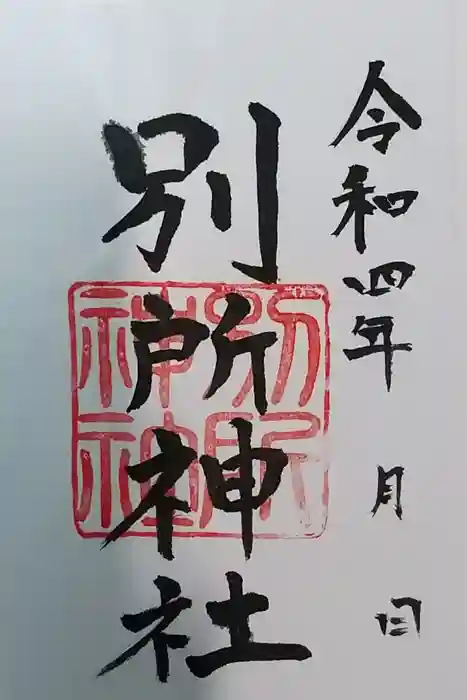 令和四年 月 日
別所神社
別所
神社